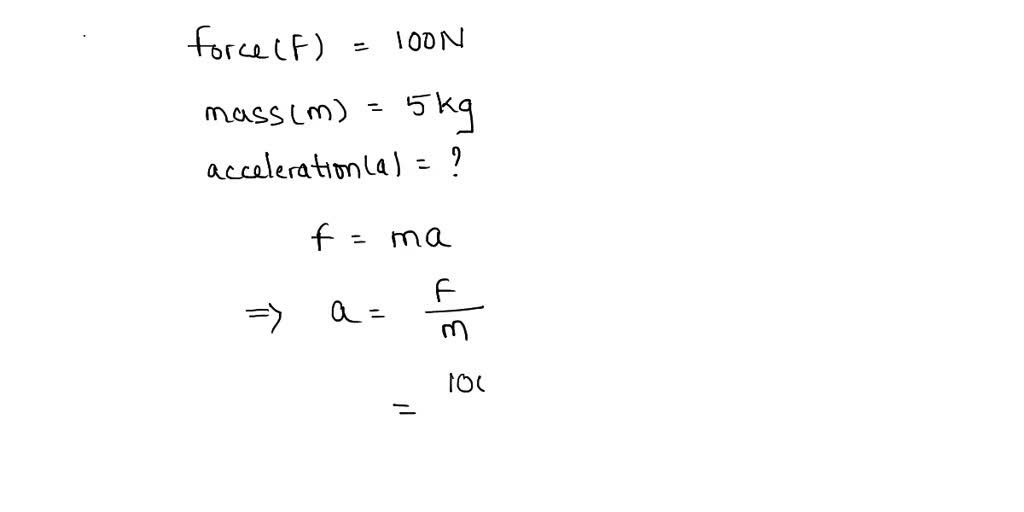 force(F) = 100N
mass(m) = 5kg
acceleration(a) = ?
f = ma
⇒ a = F/m
= 10